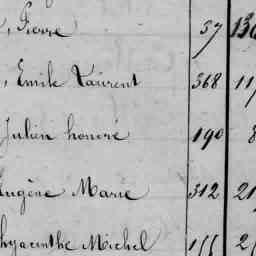 , Pierre 57 130
, Emile Laurent 368 11
Julien honoré 190 8
Eugène Marie 312 21
hyacinthe Michel 155 2